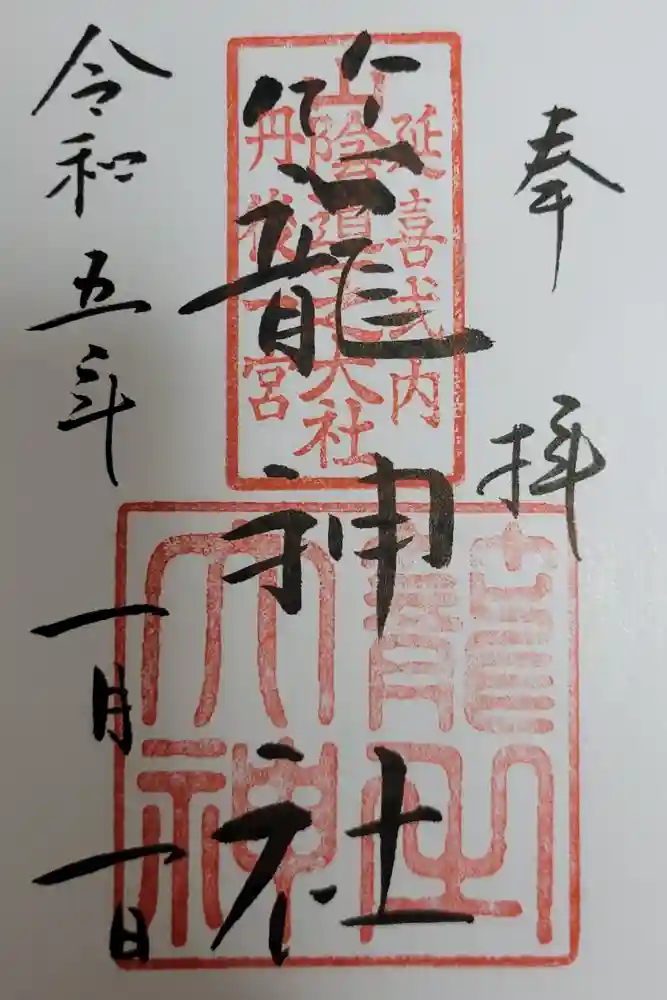 奉拝
延喜式内
山陰道一之大社
丹後一宮
籠神社
籠之
大神
令和五年一月一日